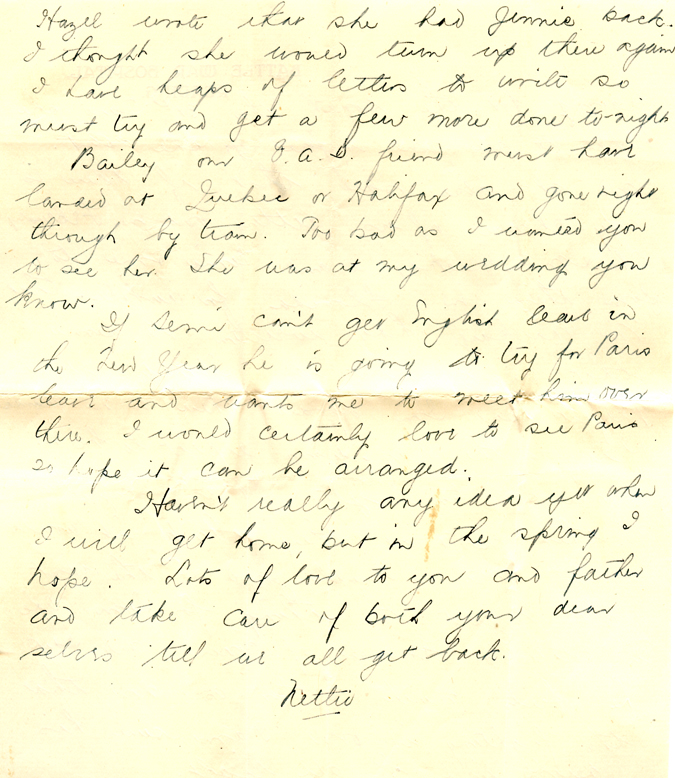 Hazel wrote that she had Jennie back.
I thought she would turn up there again
I have heaps of letters to write so
must try and get a few more done to-night
Bailey our V.A.D. friend must have
landed at Quebec or Halifax and gone right
through by train. Too bad as I wanted you
to see her. She was at my wedding you
know.
If can't get English leave in
the New Year he is going to try for Paris
leave and wants me to meet him over
there. I would certainly love to see Paris
so hope it can be arranged.
Haven't really any idea yet when
I will get home, but in the spring I
hope. Lots of love to you and father
and take care of both your dear
selves till we all get back.
Nettie